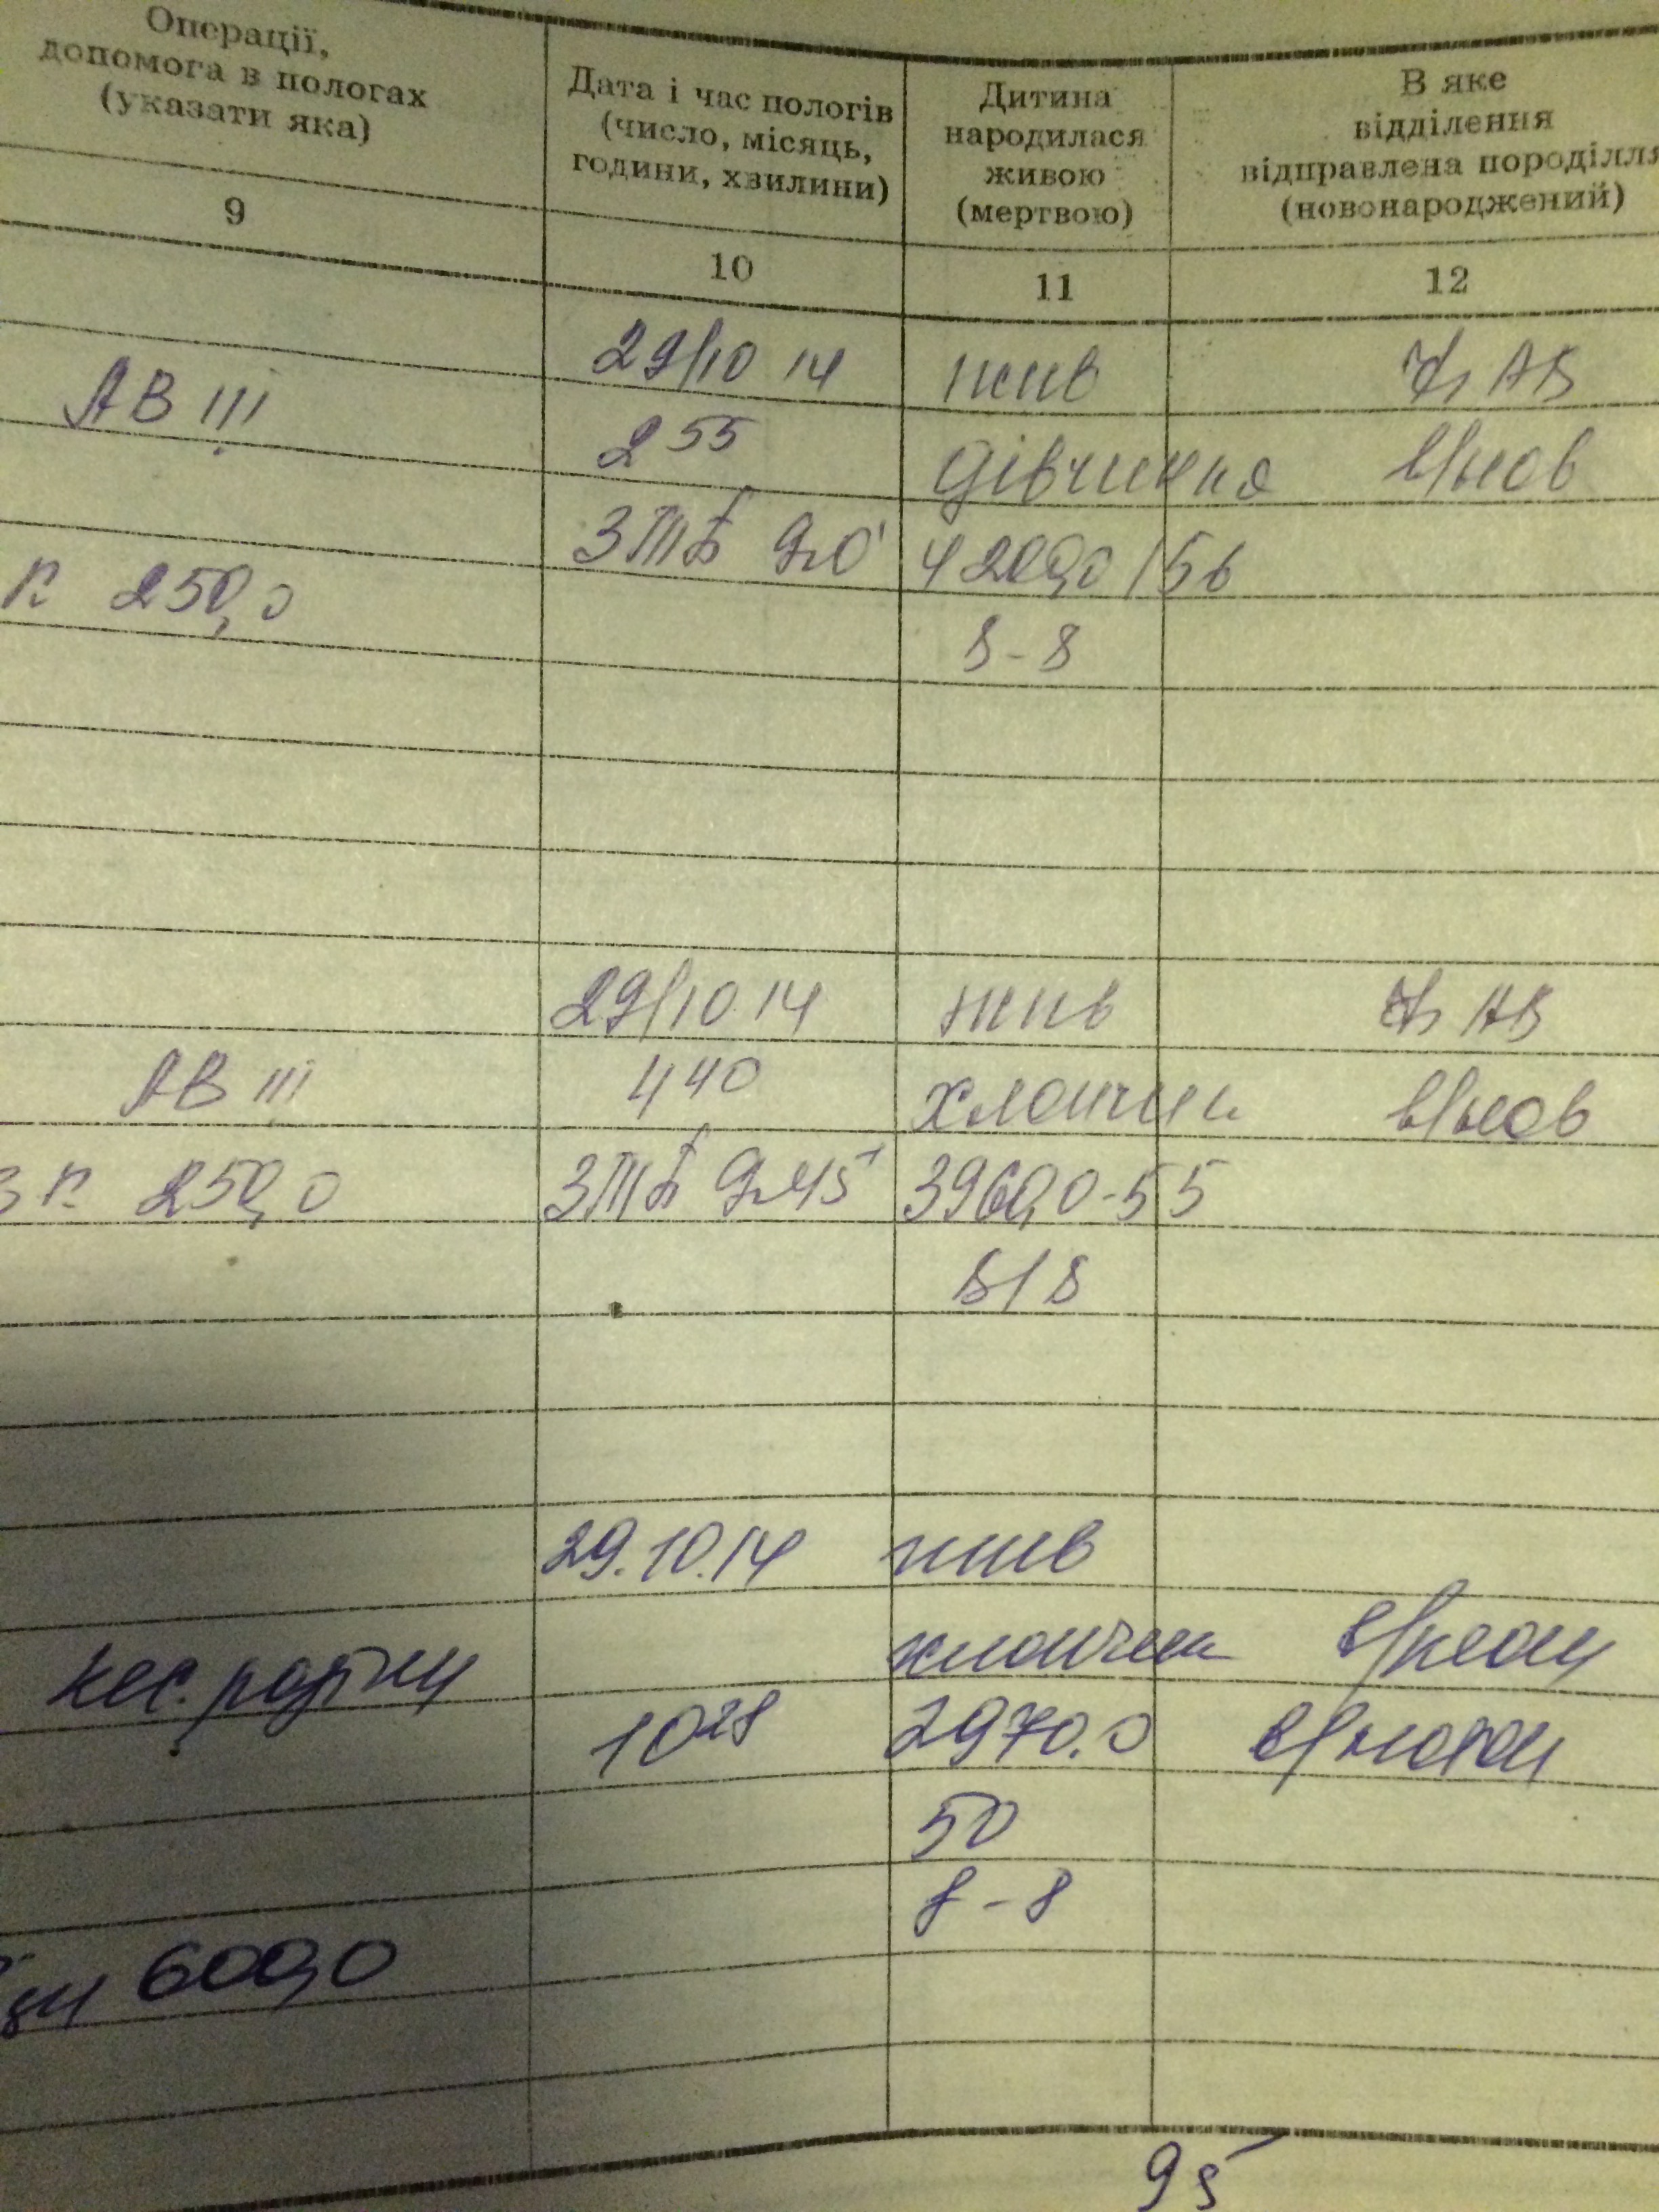 Операції,
допомога в пологах
(указати яка)
9
Дата і час пологів
(число, місяць,
години, хвилини)
10
Дитина
народилася
живою
(мертвою)
11
В яке
відділення
відправлена породілля
(новонароджений)
12
29/10 14 жив
АВ III 2 55 дівчинка
4200,0 / 56
250,0
8 - 8
29/10 14 жив
АВ III 4 40 хлопчик
250,0 3960,0 - 55
8/8
29.10.14 жив
кес. розтин хлопчик
10 28 2970.0
50
8 - 8
600,0
95